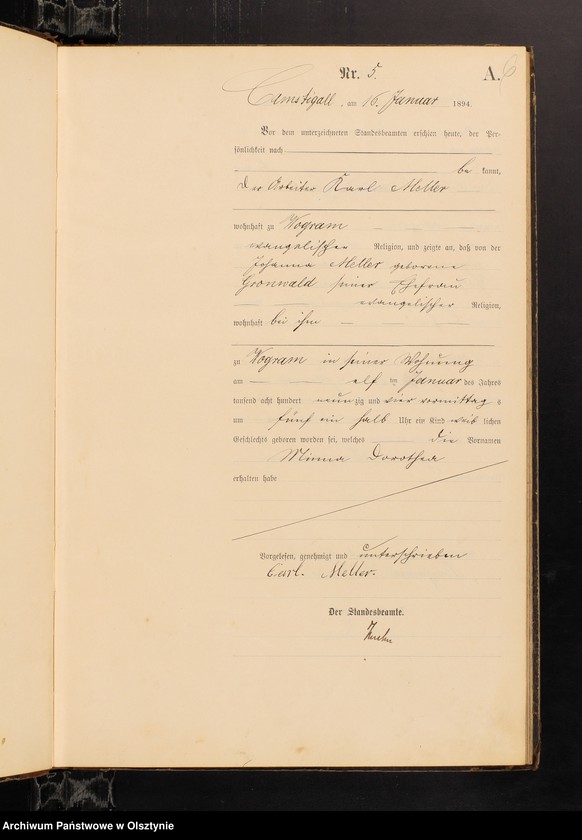 Nr. 5.
A. 6
Camstigall, am 16. Januar 1894.
Vor dem unterzeichneten Standesbeamten erschien heute, der Per-
sönlichkeit nach
be kannt,
Der Arbeiter Karl Meller
wohnhaft zu Wogram
evangelischer Religion, und zeigte an, daß von der
Johanna Meller geborene
Gronwald seiner Ehefrau
evangelischer Religion,
wohnhaft bei ihm
zu Wogram in seiner Wohnung
am elf ten Januar des Jahres
tausend acht hundert neunzig und vier vormittag s
um fünf ein halb Uhr ein Kind weib lichen
Geschlechts geboren worden sei, welches die Vornamen
Minna Dorothea
erhalten habe
Vorgelesen, genehmigt und unterschrieben
Carl. Meller.
Der Standesbeamte.
Archiwum Państwowe w Olsztynie